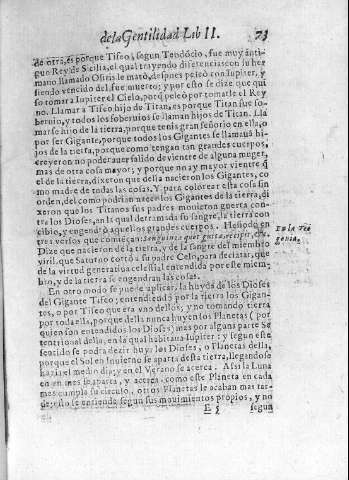 de la Gentilidad Lib II. 73
de otra, es porque Tifeo, segun Teodocio, fue muy anti-
guo Rey de Sicilia, el qual trayendo diferencias con su her
mano llamado Osiris le mató, despues peleó con Iupiter, y
siendo vencido del fue muerto; y por esto se dize que qui
so tomar a Iupiter el Cielo, porq̃ peleó por tomarle el Rey
no. Llamar a Tifeo hijo de Titan, es porque Titan fue so-
beruio, y todos los soberuios se llaman hijos de Titan. Lla
marse hijo de la tierra, porque tenia gran señorio en ella, o
por ser Gigante, porque todos los Gigantes se llamauã hi-
jos de la tierra, porque como tengan tan grandes cuerpos,
creyeron no poder auer salido de vientre de alguna muger,
mas de otra cosa mayor; y porque no ay mayor vientre q̃
el de la tierra, dixeron que della nacieron los Gigantes, co
mo madre de todas las cosas. Y para colorear esta cosa sin
orden, del como podrian nacer los Gigantes de la tierra, di
xeron que los Titanos sus padres mouieron guerra con-
tra los Dioses, en la qual derramada su sangre, la tierra con
cibio, y engendró aquellos grandes cuerpos. Hesiodo en
tres versos que comiẽçan: Sanguinis quot guttas recipit, &c.
Dize que nacieron de la tierra, y de la sangre del miembro
viril que Saturno cortó a su padre Celo, para declarar, que
de la virtud generatiua celestial entendida por este miem-
bro, y de la tierra se engendran las cosas.
En la Teo
gonia.
En otro modo se puede aplicar, la huyda de los Dioses
del Gigante Tifeo; entendiendo por la tierra los Gigan-
tes, o por Tifeo que era vno dellos; y no tomando tierra
por toda ella, porque della nunca huyen los Planetas (por
quien son entendidos los Dioses) mas por alguna parte Se
tentrional della, en la qual habitaua Iupiter: y segun este
sentido se podra dezir huyr los Dioses, o Planetas della,
porque el Sol en Inuierno se aparta desta tierra, llegandose
hazia el medio dia; y en el Verano se acerca. Assi la Luna
en vn mes se aparta, y acerca, como este Planeta en cada
mes cumpla su circulo, otros Planetas le acaban mas tar-
de; esto se entiende segun sus mouimientos propios, y no
segun